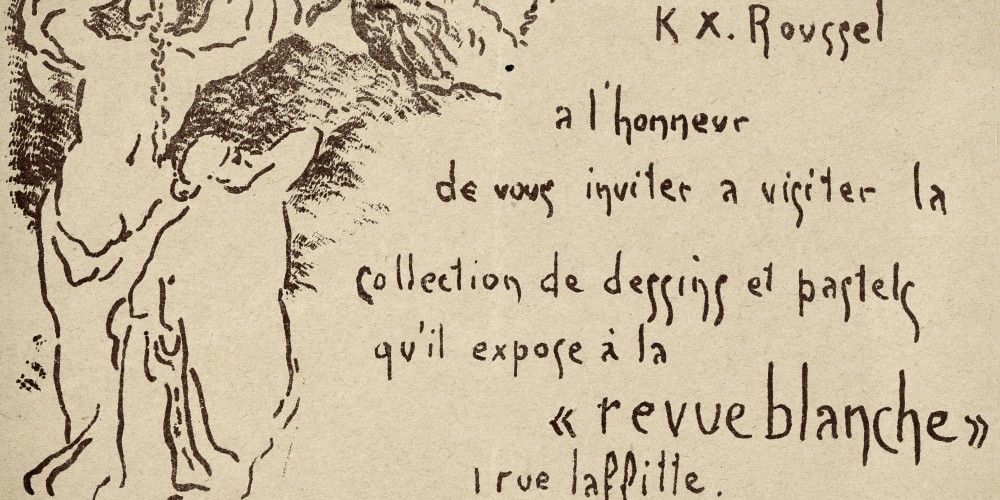 K X. Roussel
a l'honneur
de vous inviter a visiter la
collection de dessins et pastels
qu'il expose à la
« revue blanche »
1 rue laffitte.